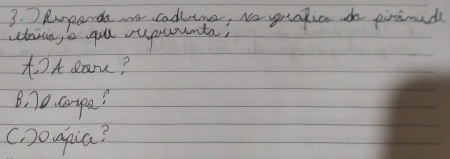 3.) Responda no caderno, No gráfico da pirâmide
etária, o que representa;
A.) A base?
B.) O corpo?
C.) O ápice?